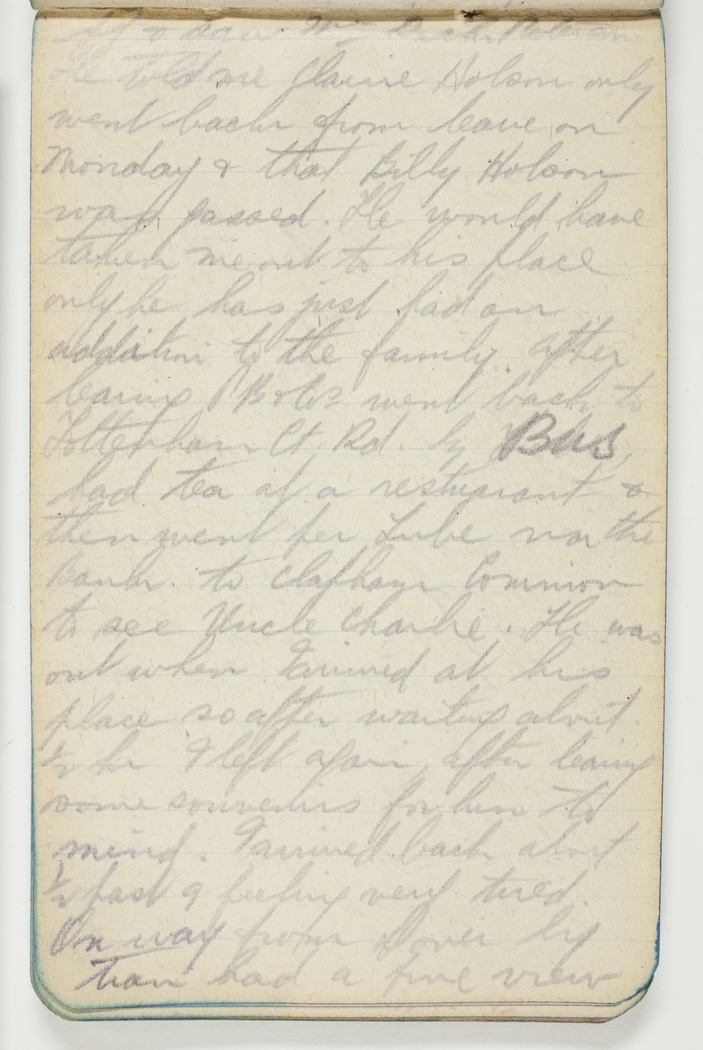 & saw Mr
He told me Claire Hobson only
went back from leave on
Monday & that Billy Hobson
was gassed. He would have
taken me out to his place
only he has just had an
addition to the family. After
leaving Bob's went back to
Tottenham Ct. Rd. by Bus,
had tea at a restaurant &
then went per Tube via the
Bank to Clapham Common
to see Uncle Charlie. He was
out when I arrived at his
place so after waiting about
½ hr I left again, after leaving
some souvenirs for him to
mind. I arrived back about
½ past 9 feeling very tired.
On way from Dover by
train had a fine view